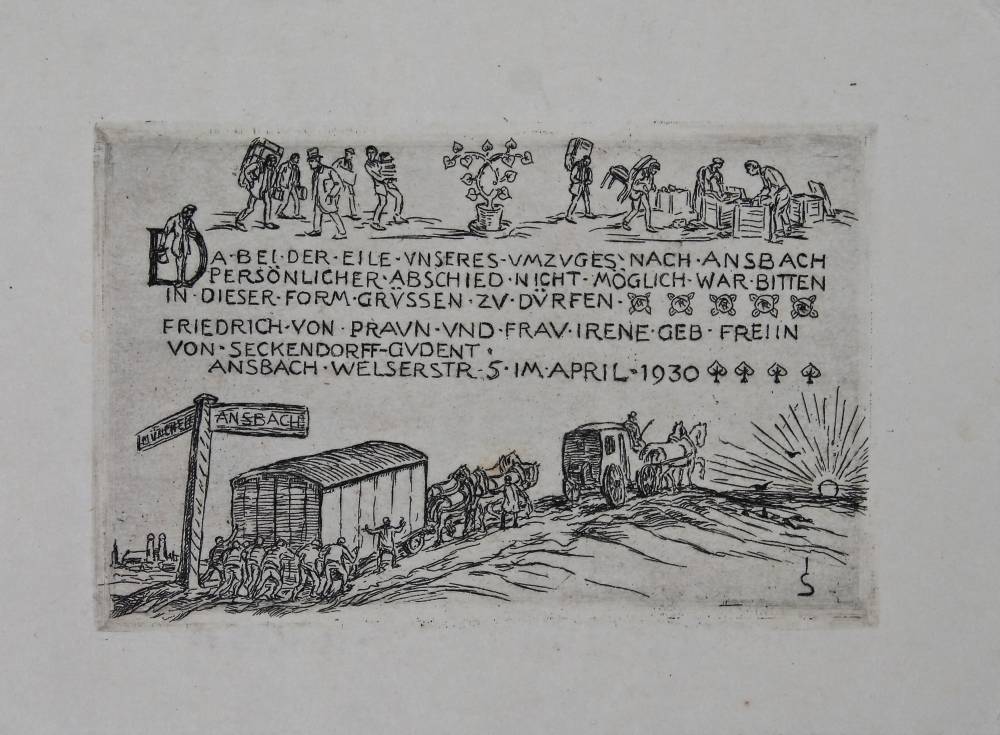 DA·BEI·DER·EILE·VNSERES·VMZVGES·NACH·ANSBACH
PERSÖNLICHER·ABSCHIED·NICHT·MÖGLICH·WAR·BITTEN
IN·DIESER·FORM·GRÜSSEN·ZV·DÜRFEN·
FRIEDRICH·VON·PRAVN·VND·FRAV·IRENE·GEB·FREIIN
VON·SECKENDORFF-GVDENT·
ANSBACH·WELSERSTR·5·IM·APRIL·1930
MÜNCHEN
ANSBACH
IS